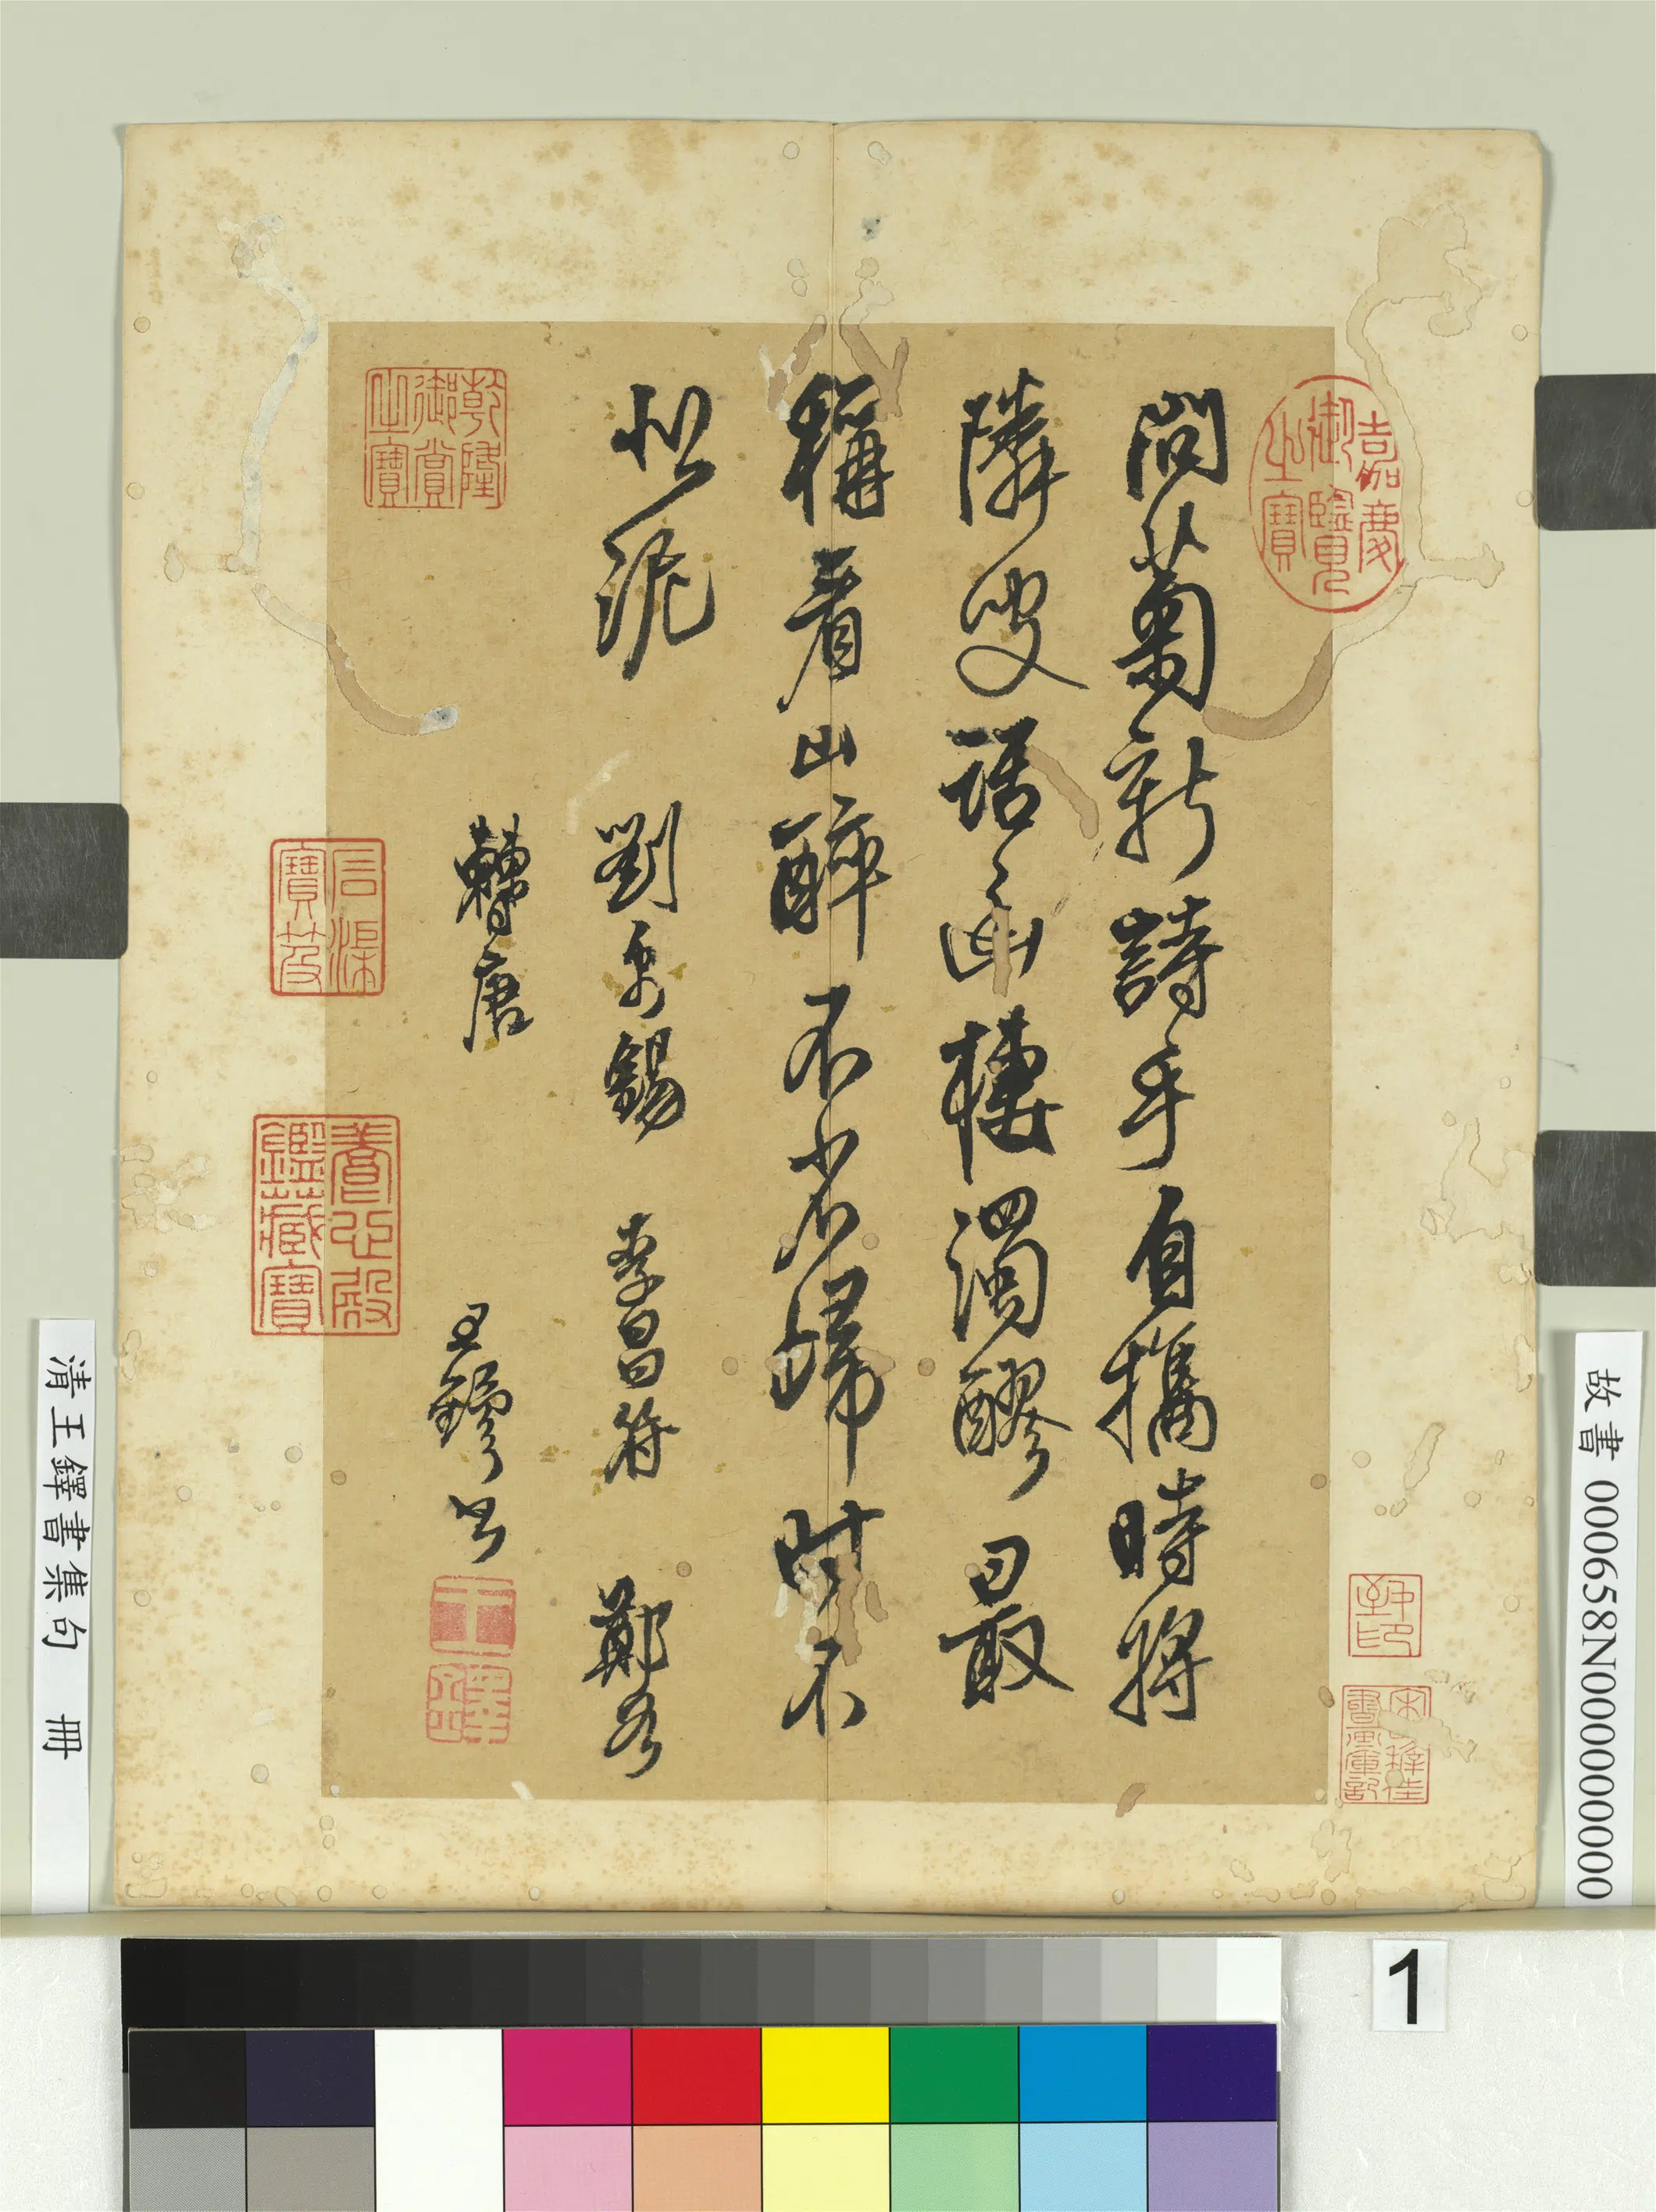 嘉慶御覽之寶
問菊新詩手自攜時將
隣叟話幽棲濁醪最
稱看山醉不省歸時不
泥 劉禹錫 李昌符 鄭谷
唐 王鐸書
乾隆御賞之寶
石渠寶笈
養心殿鑑藏寶
清王鐸書集句 冊
故書 000658N000000000
1